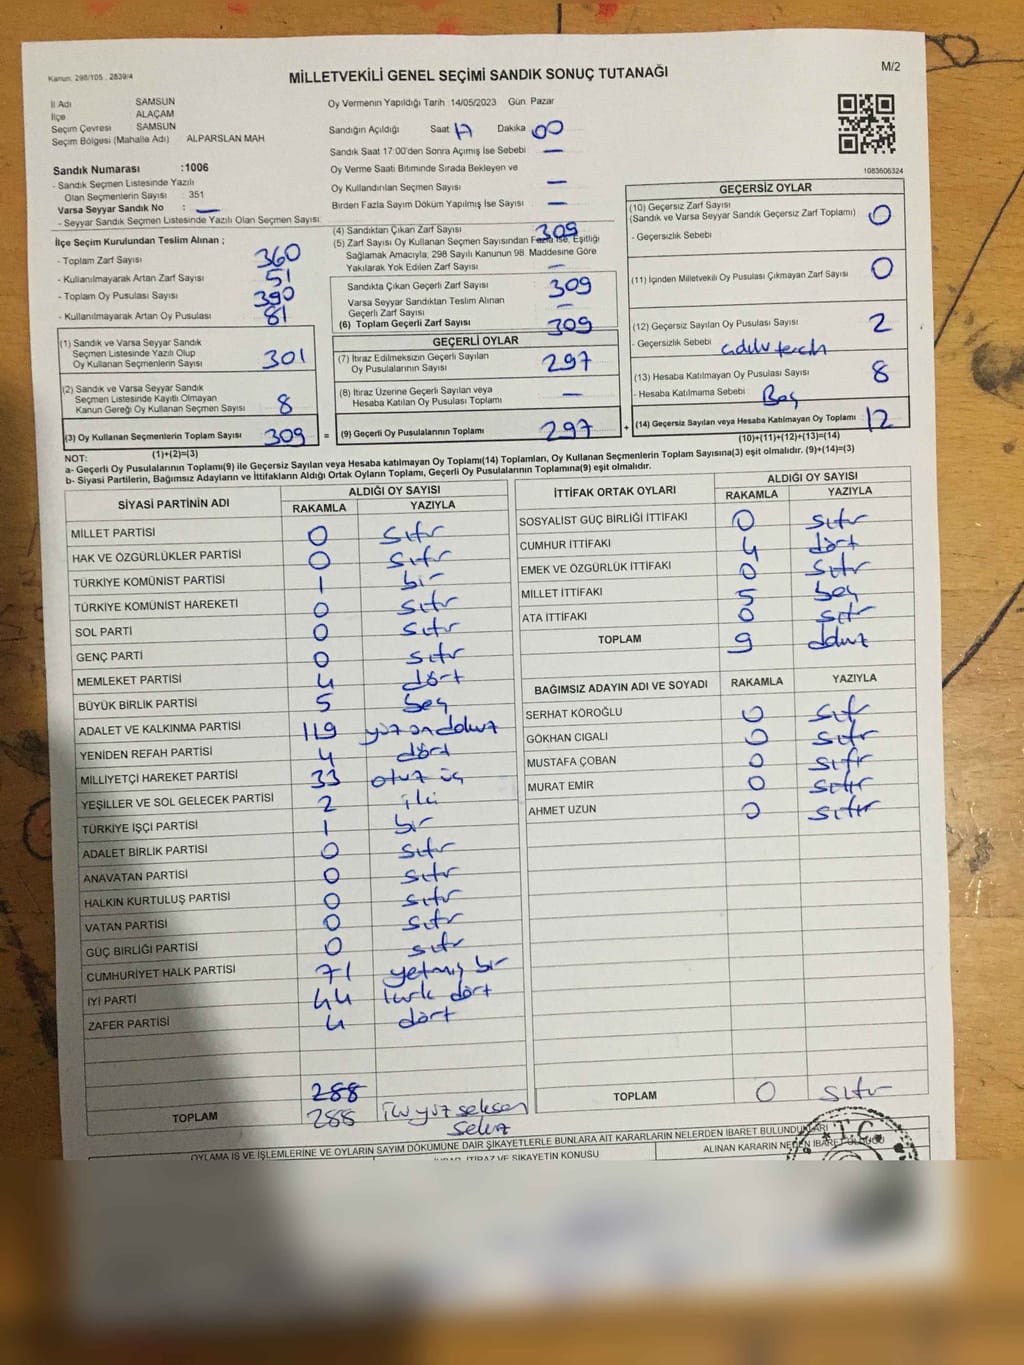 Kanun, 298/105 , 2839/4
MİLLETVEKİLİ GENEL SEÇİMİ SANDIK SONUÇ TUTANAĞI
M/2
İl Adı SAMSUN
İlçe ALAÇAM
Seçim Çevresi SAMSUN
Seçim Bölgesi (Mahalle Adı) ALPARSLAN MAH
Oy Vermenin Yapıldığı Tarih :14/05/2023 Gün: Pazar
Sandığın Açıldığı Saat 17 Dakika 00
Sandık Saat 17:00'den Sonra Açımış İse Sebebi —
Oy Verme Saati Bitiminde Sırada Bekleyen ve
Oy Kullandırılan Seçmen Sayısı —
Birden Fazla Sayım Döküm Yapılmış İse Sayısı —
1083606324
Sandık Numarası :1006
- Sandık Seçmen Listesinde Yazılı
Olan Seçmenlerin Sayısı : 351
Varsa Seyyar Sandık No : —
- Seyyar Sandık Seçmen Listesinde Yazılı Olan Seçmen Sayısı:
İlçe Seçim Kurulundan Teslim Alınan ;
- Toplam Zarf Sayısı 360
- Kullanılmayarak Artan Zarf Sayısı 51
- Toplam Oy Pusulası Sayısı 390
- Kullanılmayarak Artan Oy Pusulası 81
(1) Sandık ve Varsa Seyyar Sandık
Seçmen Listesinde Yazılı Olup
Oy Kullanan Seçmenlerin Sayısı 301
(2) Sandık ve Varsa Seyyar Sandık
Seçmen Listesinde Kayıtlı Olmayan
Kanun Gereği Oy Kullanan Seçmen Sayısı 8
(3) Oy Kullanan Seçmenlerin Toplam Sayısı 309 =
(1)+(2)=(3)
(4) Sandıktan Çıkan Zarf Sayısı 309
(5) Zarf Sayısı Oy Kullanan Seçmen Sayısından Fazla ise, Eşitliği
Sağlamak Amacıyla, 298 Sayılı Kanunun 98. Maddesine Göre
Yakılarak Yok Edilen Zarf Sayısı —
Sandıkta Çıkan Geçerli Zarf Sayısı 309
Varsa Seyyar Sandıktan Teslim Alınan
Geçerli Zarf Sayısı —
(6) Toplam Geçerli Zarf Sayısı 309
GEÇERLİ OYLAR
(7) İtiraz Edilmeksizin Geçerli Sayılan
Oy Pusulalarının Sayısı 297
(8) İtiraz Üzerine Geçerli Sayılan veya
Hesaba Katılan Oy Pusulası Toplamı —
(9) Geçerli Oy Pusulalarının Toplamı 297 +
GEÇERSİZ OYLAR
(10) Geçersiz Zarf Sayısı
(Sandık ve Varsa Seyyar Sandık Geçersiz Zarf Toplamı) 0
- Geçersizlik Sebebi
(11) İçinden Milletvekili Oy Pusulası Çıkmayan Zarf Sayısı 0
(12) Geçersiz Sayılan Oy Pusulası Sayısı 2
- Geçersizlik Sebebi
(13) Hesaba Katılmayan Oy Pusulası Sayısı 8
- Hesaba Katılmama Sebebi Boş
(14) Geçersiz Sayılan veya Hesaba Katılmayan Oy Toplamı 12
(10)+(11)+(12)+(13)=(14)
NOT:
a- Geçerli Oy Pusulalarının Toplamı(9) ile Geçersiz Sayılan veya Hesaba katılmayan Oy Toplamı(14) Toplamları, Oy Kullanan Seçmenlerin Toplam Sayısına(3) eşit olmalıdır. (9)+(14)=(3)
b- Siyasi Partilerin, Bağımsız Adayların ve İttifakların Aldığı Ortak Oyların Toplamı, Geçerli Oy Pusulalarının Toplamına(9) eşit olmalıdır.
SİYASİ PARTİNİN ADI ALDIĞI OY SAYISI
RAKAMLA YAZIYLA
MİLLET PARTİSİ 0 sıfır
HAK VE ÖZGÜRLÜKLER PARTİSİ 0 sıfır
TÜRKİYE KOMÜNİST PARTİSİ 1 bir
TÜRKİYE KOMÜNİST HAREKETİ 0 sıfır
SOL PARTİ 0 sıfır
GENÇ PARTİ 0 sıfır
MEMLEKET PARTİSİ 4 dört
BÜYÜK BİRLİK PARTİSİ 5 beş
ADALET VE KALKINMA PARTİSİ 119 yüz on dokuz
YENİDEN REFAH PARTİSİ 4 dört
MİLLİYETÇİ HAREKET PARTİSİ 33 otuz üç
YEŞİLLER VE SOL GELECEK PARTİSİ 2 iki
TÜRKİYE İŞÇİ PARTİSİ 1 bir
ADALET BİRLİK PARTİSİ 0 sıfır
ANAVATAN PARTİSİ 0 sıfır
HALKIN KURTULUŞ PARTİSİ 0 sıfır
VATAN PARTİSİ 0 sıfır
GÜÇ BİRLİĞİ PARTİSİ 0 sıfır
CUMHURİYET HALK PARTİSİ 71 yetmiş bir
İYİ PARTİ 44 kırk dört
ZAFER PARTİSİ 4 dört
288
TOPLAM 288 iki yüz seksen
sekiz
İTTİFAK ORTAK OYLARI ALDIĞI OY SAYISI
RAKAMLA YAZIYLA
SOSYALİST GÜÇ BİRLİĞİ İTTİFAKI 0 sıfır
CUMHUR İTTİFAKI 4 dört
EMEK VE ÖZGÜRLÜK İTTİFAKI 0 sıfır
MİLLET İTTİFAKI 5 beş
ATA İTTİFAKI 0 sıfır
TOPLAM 9 dokuz
BAĞIMSIZ ADAYIN ADI VE SOYADI RAKAMLA YAZIYLA
SERHAT KÖROĞLU 0 sıfır
GÖKHAN CIGALI 0 sıfır
MUSTAFA ÇOBAN 0 sıfır
MURAT EMİR 0 sıfır
AHMET UZUN 0 sıfır
TOPLAM 0 sıfır
OYLAMA İŞ VE İŞLEMLERİNE VE OYLARIN SAYIM DÖKÜMÜNE DAİR ŞİKAYETLERLE BUNLARA AİT KARARLARIN NELERDEN İBARET BULUNDUKLARI
İTİRAZ VE ŞİKAYETİN KONUSU
ALINAN KARARIN NEDEN İBARET OLDUĞU
T.C.